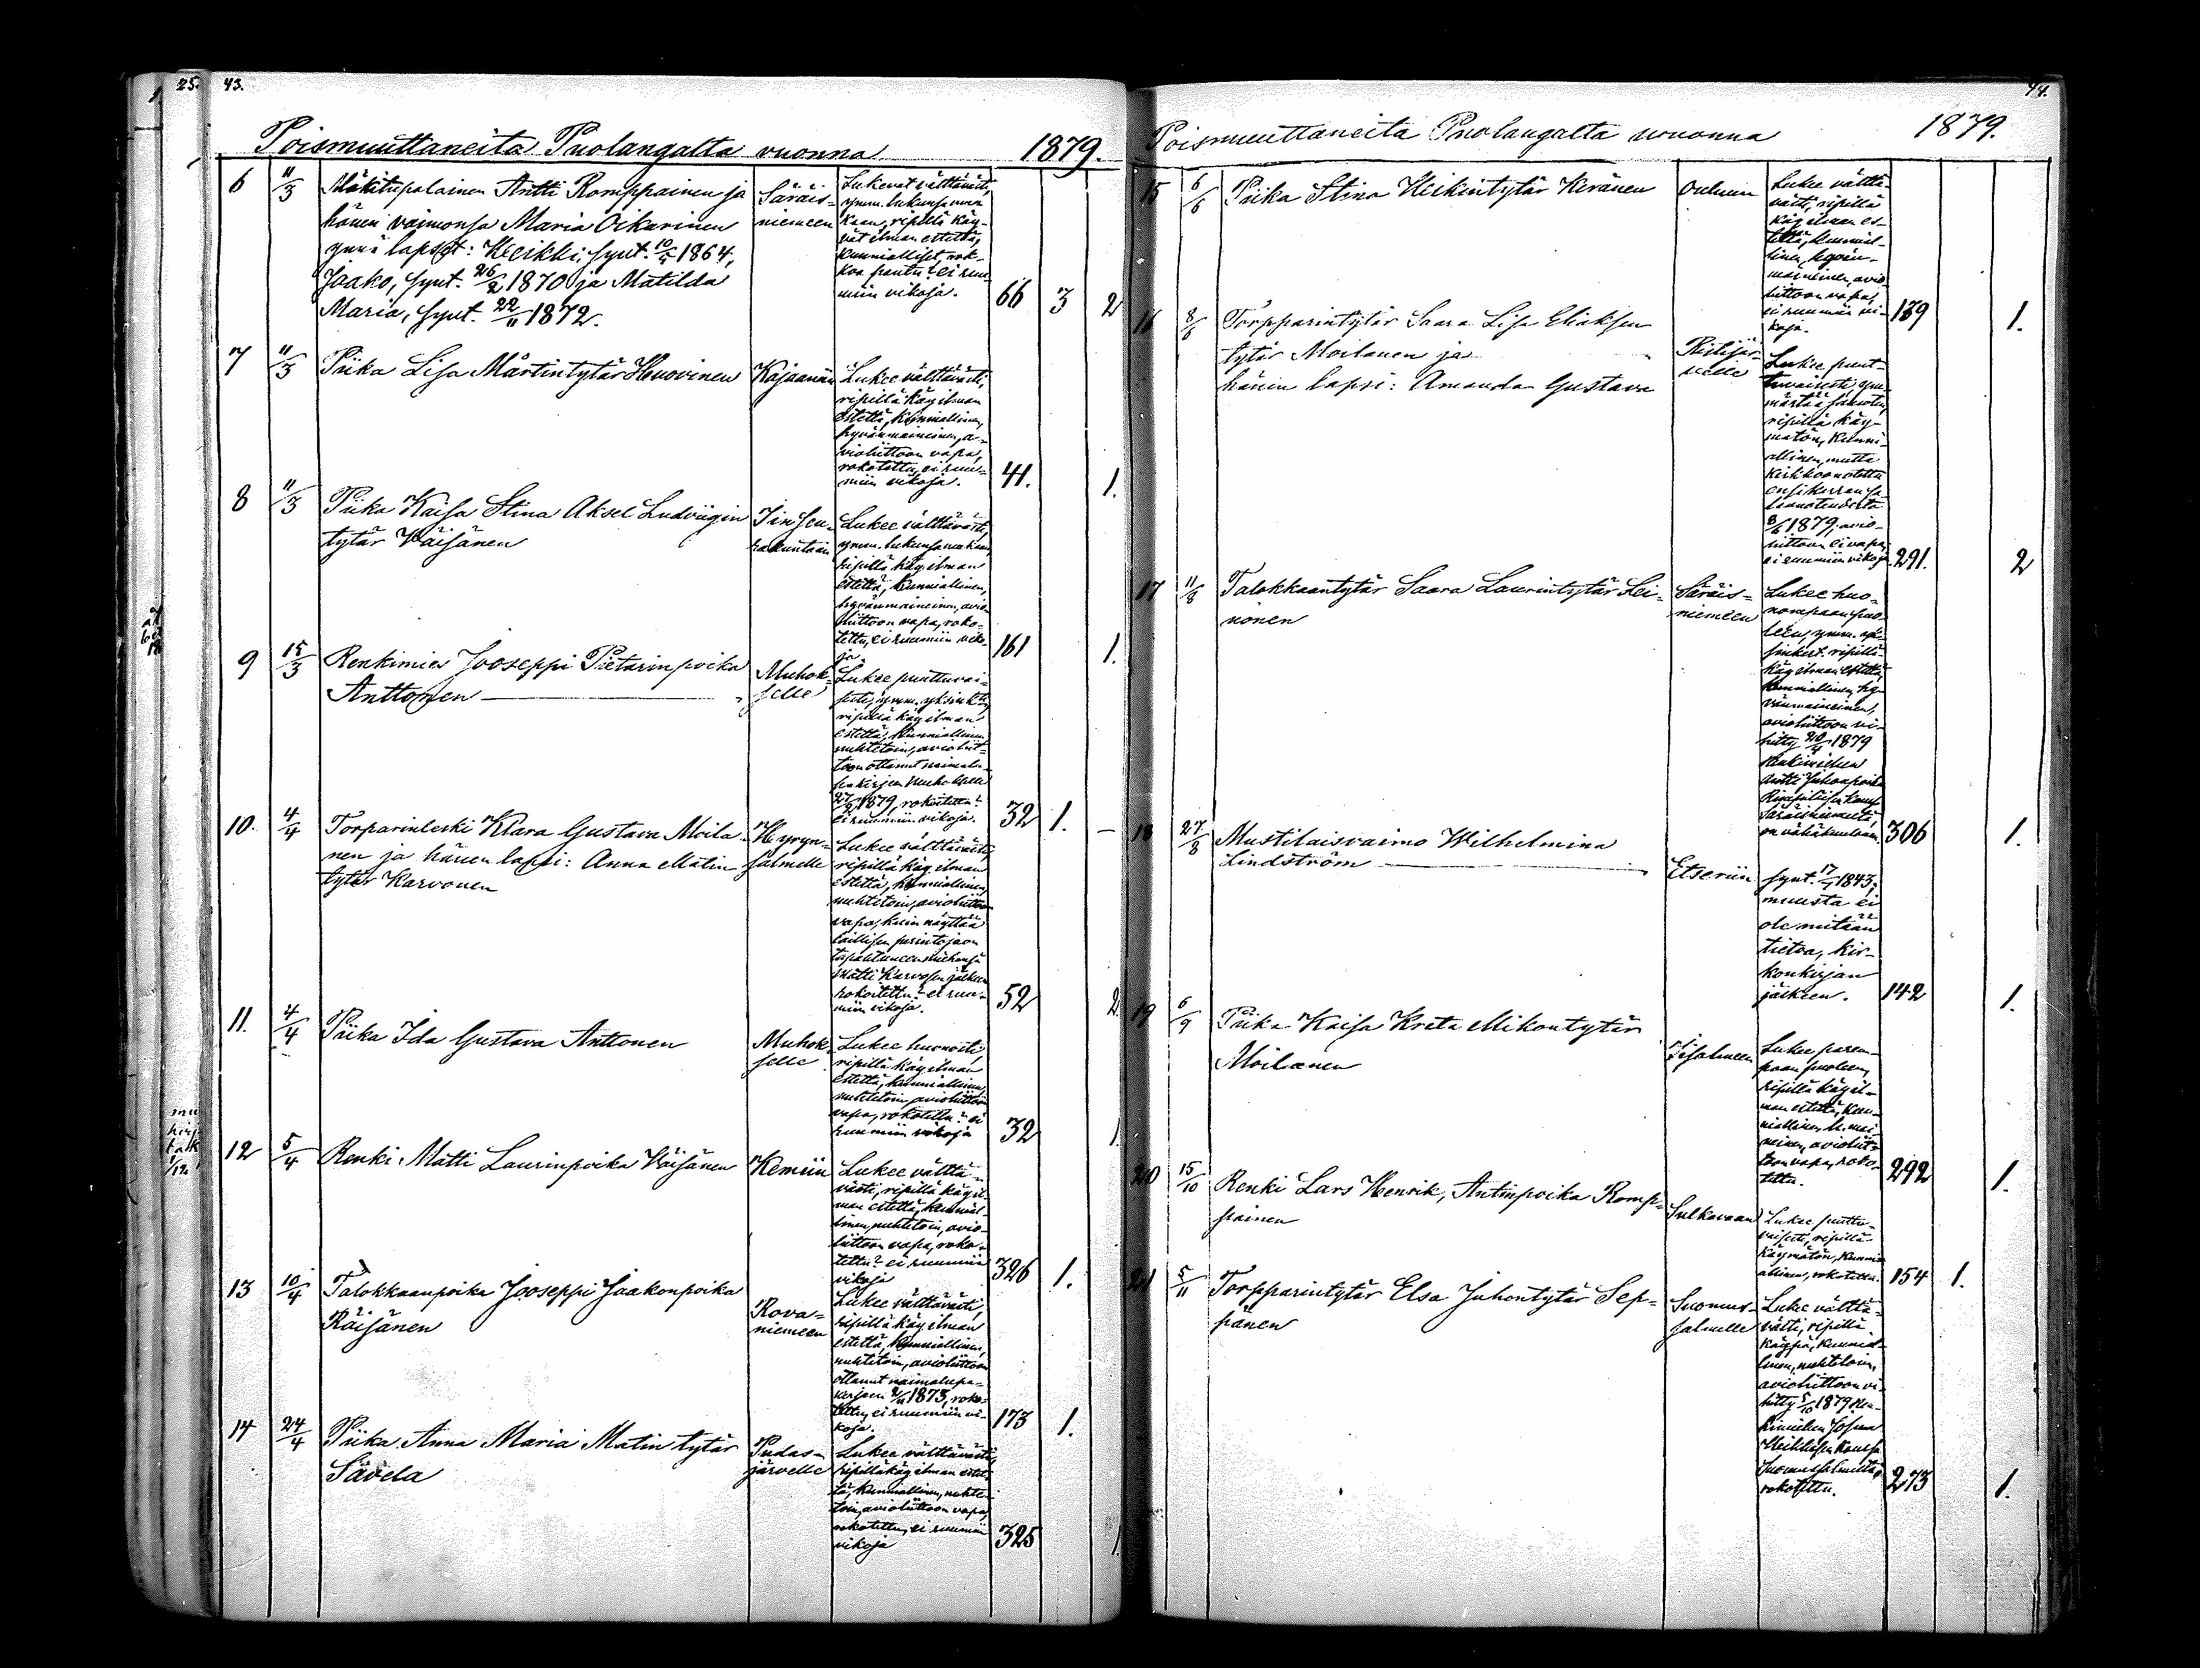 43.
Poismuuttaneita Puolangalta vuonna 1879.
6 11/3 Mäkitupalainen Antti Romppainen ja
hänen vaimonsa Maria Oikarinen
ynnä lapset: Heikki, synt. 10/5 1864,
Jaako, synt. 26/2 1870 ja Matilda
Maria, synt. 22/11 1872.
Säräis-
niemeen
Lukevat välttäväst.,
ymm. lukunsa
ripillä käy-
vät ilman estettä,
kunnialliset, rok-
koa pantu? ei ruu-
miin vikoja.
66 3 2
7 11/3 Piika Lisa Mårtintytär Huovinen
Kajaaniin
Lukee välttäväst.,
ripillä käy ilman
estettä, kunniallinen,
hyvänmaineinen, a-
violiittoon vapa,
rokotettu, ei ruu-
miin vikoja.
41. 1.
8 11/3 Piika Kaisa Stina Aksel Ludviigin
tytär Väisänen
Iin seu-
rakuntaan
Lukee välttäväst.,
ymm. lukunsa mukaan,
ripillä käy ilman
estettä, kunniallinen,
hyvänmaineinen, avio-
liittoon vapa, roko-
tettu, ei ruumiin viko-
ja.
161 1.
9 15/3 Renkimies Jooseppi Pietarinpoika
Anttonen
Muhok-
selle
Lukee puuttuvai-
sesti, ymm. yksink.,
ripillä käy ilman
estettä, kunniallinen
nuhteetoin, avioliit-
toon ottanut naimalu-
pakirjan Muhokselle
27/2 1879, rokoitettu?
ei ruumiin vikoja.
32 1.
10. 4/4 Torparinleski Klara Gustava Moila-
nen ja hänen lapsi: Anna Matin
tytär Karvonen
Hyryn-
salmelle
Lukee välttäväst.,
ripillä käy ilman
estettä, kunniallinen,
nuhtetoin, avioliittoon
vapa, kuin näyttää
laillisen perintöjaon
tapahtuneen miehensä
Matti Karvosen jälkeen
rokoitettu? ei ruu-
miin vikoja.
52 2
11. 4/4 Piika Ida Gustava Anttonen
Muhok-
selle
Lukee huonosti,
ripillä käy ilman
estettä, kunniallinen,
nuhtetoin, avioliittoon
vapa, rokotettu? ei
ruumiin vikoja
32 1
12 5/4 Renki Matti Laurinpoika Väisänen
Kemiin
Lukee välttä-
västi, ripillä käy il-
man estettä, kunnial-
linen, nuhtetoin, avio-
liittoon vapa, roko-
tettu? ei ruumiin
vikoja
326 1.
13 10/4 Talokkaanpoika Jooseppi Jaakonpoika
Räisänen
Rova-
niemeen
Lukee välttäväst.,
ripillä käy ilman
estettä, kunniallinen,
nuhtetoin, avioliittoon
ottanut naimalupa-
kirjan 1873, roko-
tettu, ei ruumiin vi-
koja.
173 1.
14 24/4 Piika Anna Maria Matin tytär
Sävela
Pudas-
järvelle
Lukee välttäväst.,
ripillä käy ilman estet-
tä, kunniallinen, nuhte-
toin, avioliittoon vapa,
rokotettu, ei ruumiin
vikoja
325 1
44.
Poismuuttaneita Puolangalta vuonna 1879.
15 6/6 Piika Stina Heikintytär Keränen
Ouluun
Lukee välttä-
västi, ripillä
käy ilman es-
tettä, kunnial-
linen, hyvän-
maineinen, avio-
liittoon vapa,
ei ruumiin vi-
koja.
189 1.
16 8/8 Torpparintytär Saara Lisa Eliaksen
tytär Moilanen ja
hänen lapsi: Amanda Gustava
Ristijär-
velle
Lukee puut-
tuvaisesti, ym-
märtää
ripillä käy-
mätön, kunni-
allinen, mutta
kirkkoonotettu
ensikerran sa-
lavuoteudesta
1879, avio-
liittoon ei vapa,
ei ruumiin vikoja
291. 2
17 11/8 Talokkaantytär Saara Laurintytär Lei-
nonen
Säräis-
niemeen
Lukee huo-
nompaan puo-
leen, ymm. yk-
sinkert. ripillä
käy ilman estettä,
kunniallinen, hy-
vänmaineinen,
avioliittoon vi-
hitty 20/4 1879
Renkimiehen
Antti Juhonpoika
kanssa
Säräisniemeltä,
on vähäkuuloinen
306 1.
18 27/8 Mustilaisvaimo Wilhelmina
Lindström
Etseriin
synt. 17/1 1843;
muusta ei
ole mitään
tietoa, kir-
konkirjan
jälkeen.
142 1.
19 6/9 Piika Kaisa Kreta Mikontytär
Moilanen
Iisalmeen
Lukee parem-
paan puoleen,
ripillä käy il-
man estettä, kun-
niallinen, h. mai-
neinen, avioliit-
toon vapa, roko-
tettu.
292 1.
20 15/10 Renki Lars Henrik, Antinpoika Romp-
painen
Sulkavaan
Lukee puuttu-
vaisesti, ripillä-
käymätön, kunni-
allinen, rokotettu.
154 1.
21 5/11 Torpparintytär Elsa Juhontytär Sep-
pänen
Suomus-
salmelle
Lukee välttä-
västi, ripillä
käypä, kunnial-
linen, nuhtetoin,
avioliittoon vi-
hitty 5/10 1879 Ren-
kimiehen Josua
Heikkisen kanssa
Suomussalmelta,
rokotettu.
273 1.